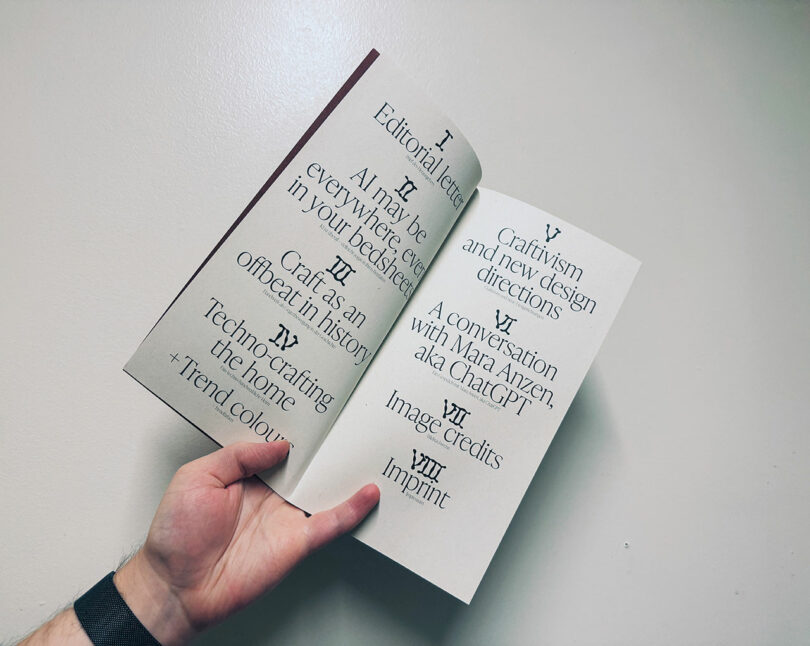 I
Editorial letter
II
AI may be
everywhere, even
in your bedsheets
III
Craft as an
offbeat in history
IV
Techno-crafting
the home
+ Trend colours
V
Craftivism
and new design
directions
VI
A conversation
with Mara Anzen,
aka ChatGPT
VII
Image credits
VIII
Imprint